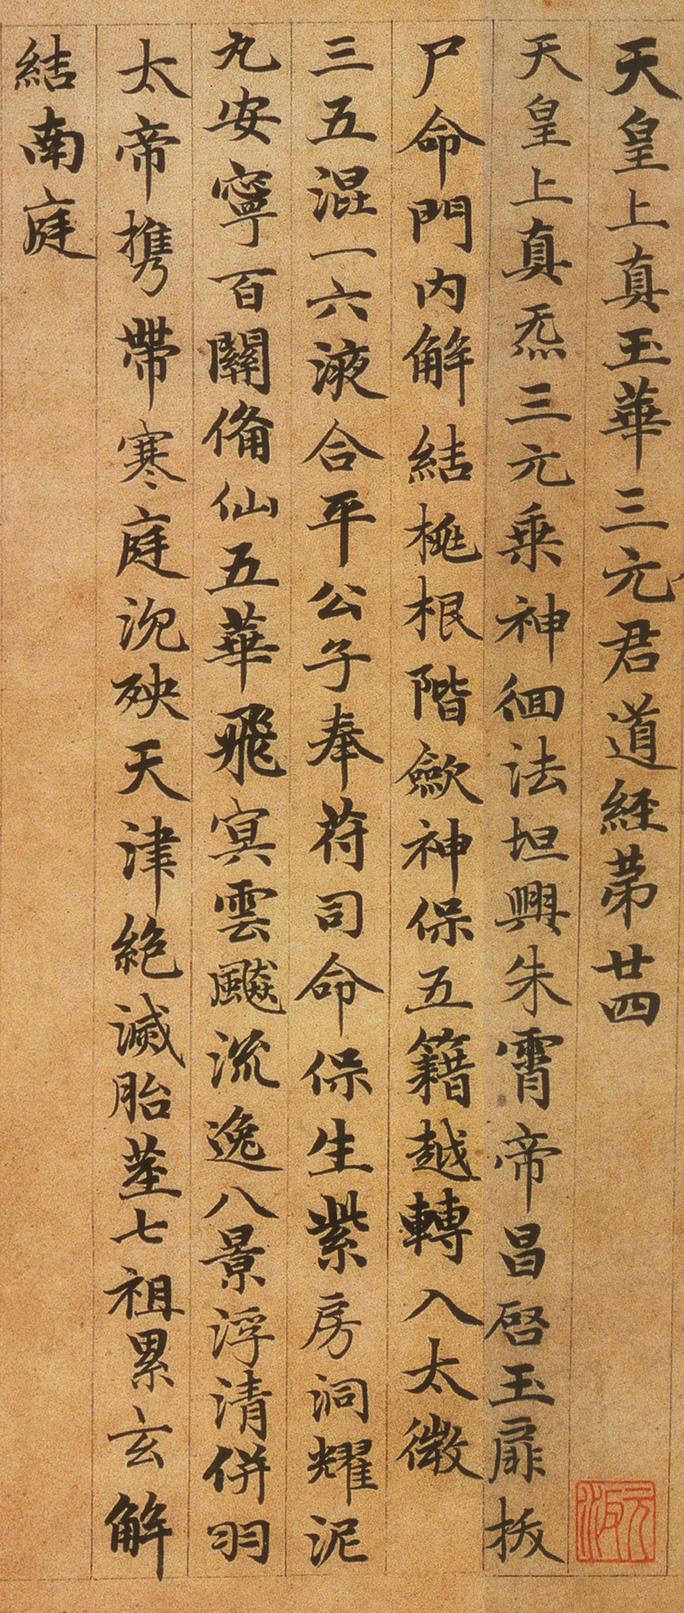 天皇上真玉華三元君道經苐廿四
天皇上真炁三元乗神徊法坦興朱霄帝昌啓玉扉扳
尸命門内解結桃根階歛神保五籍越轉入太微
三五混一六液合平公子奉荷司命保生紫房洞耀泥
丸安寧百關俻仙五華飛冥雲飈流逸八景浮清併羽
太帝携帶寒庭沉殃天津絶滅胎莖七祖累玄解
結南庭